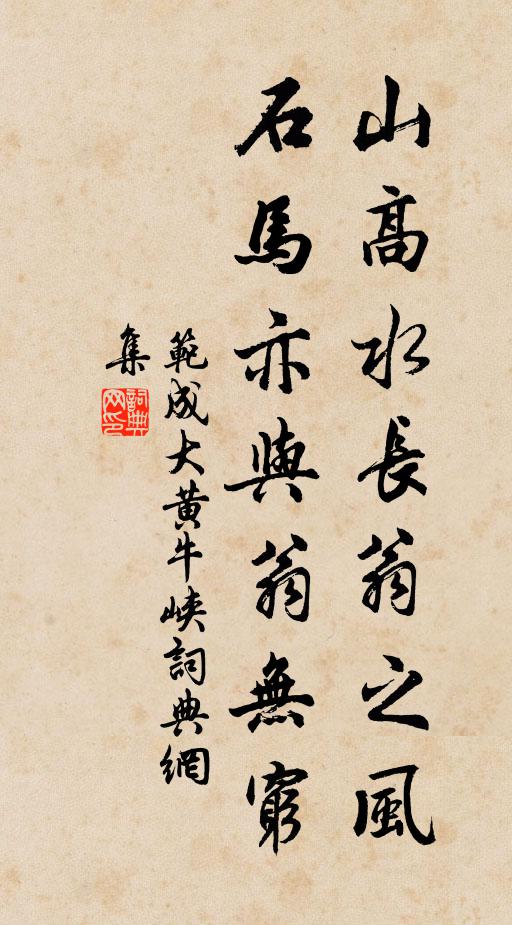 山高水長翁之風
石馬亦與翁無窮
範成大黄牛峡詞典網
集
詞典
网印